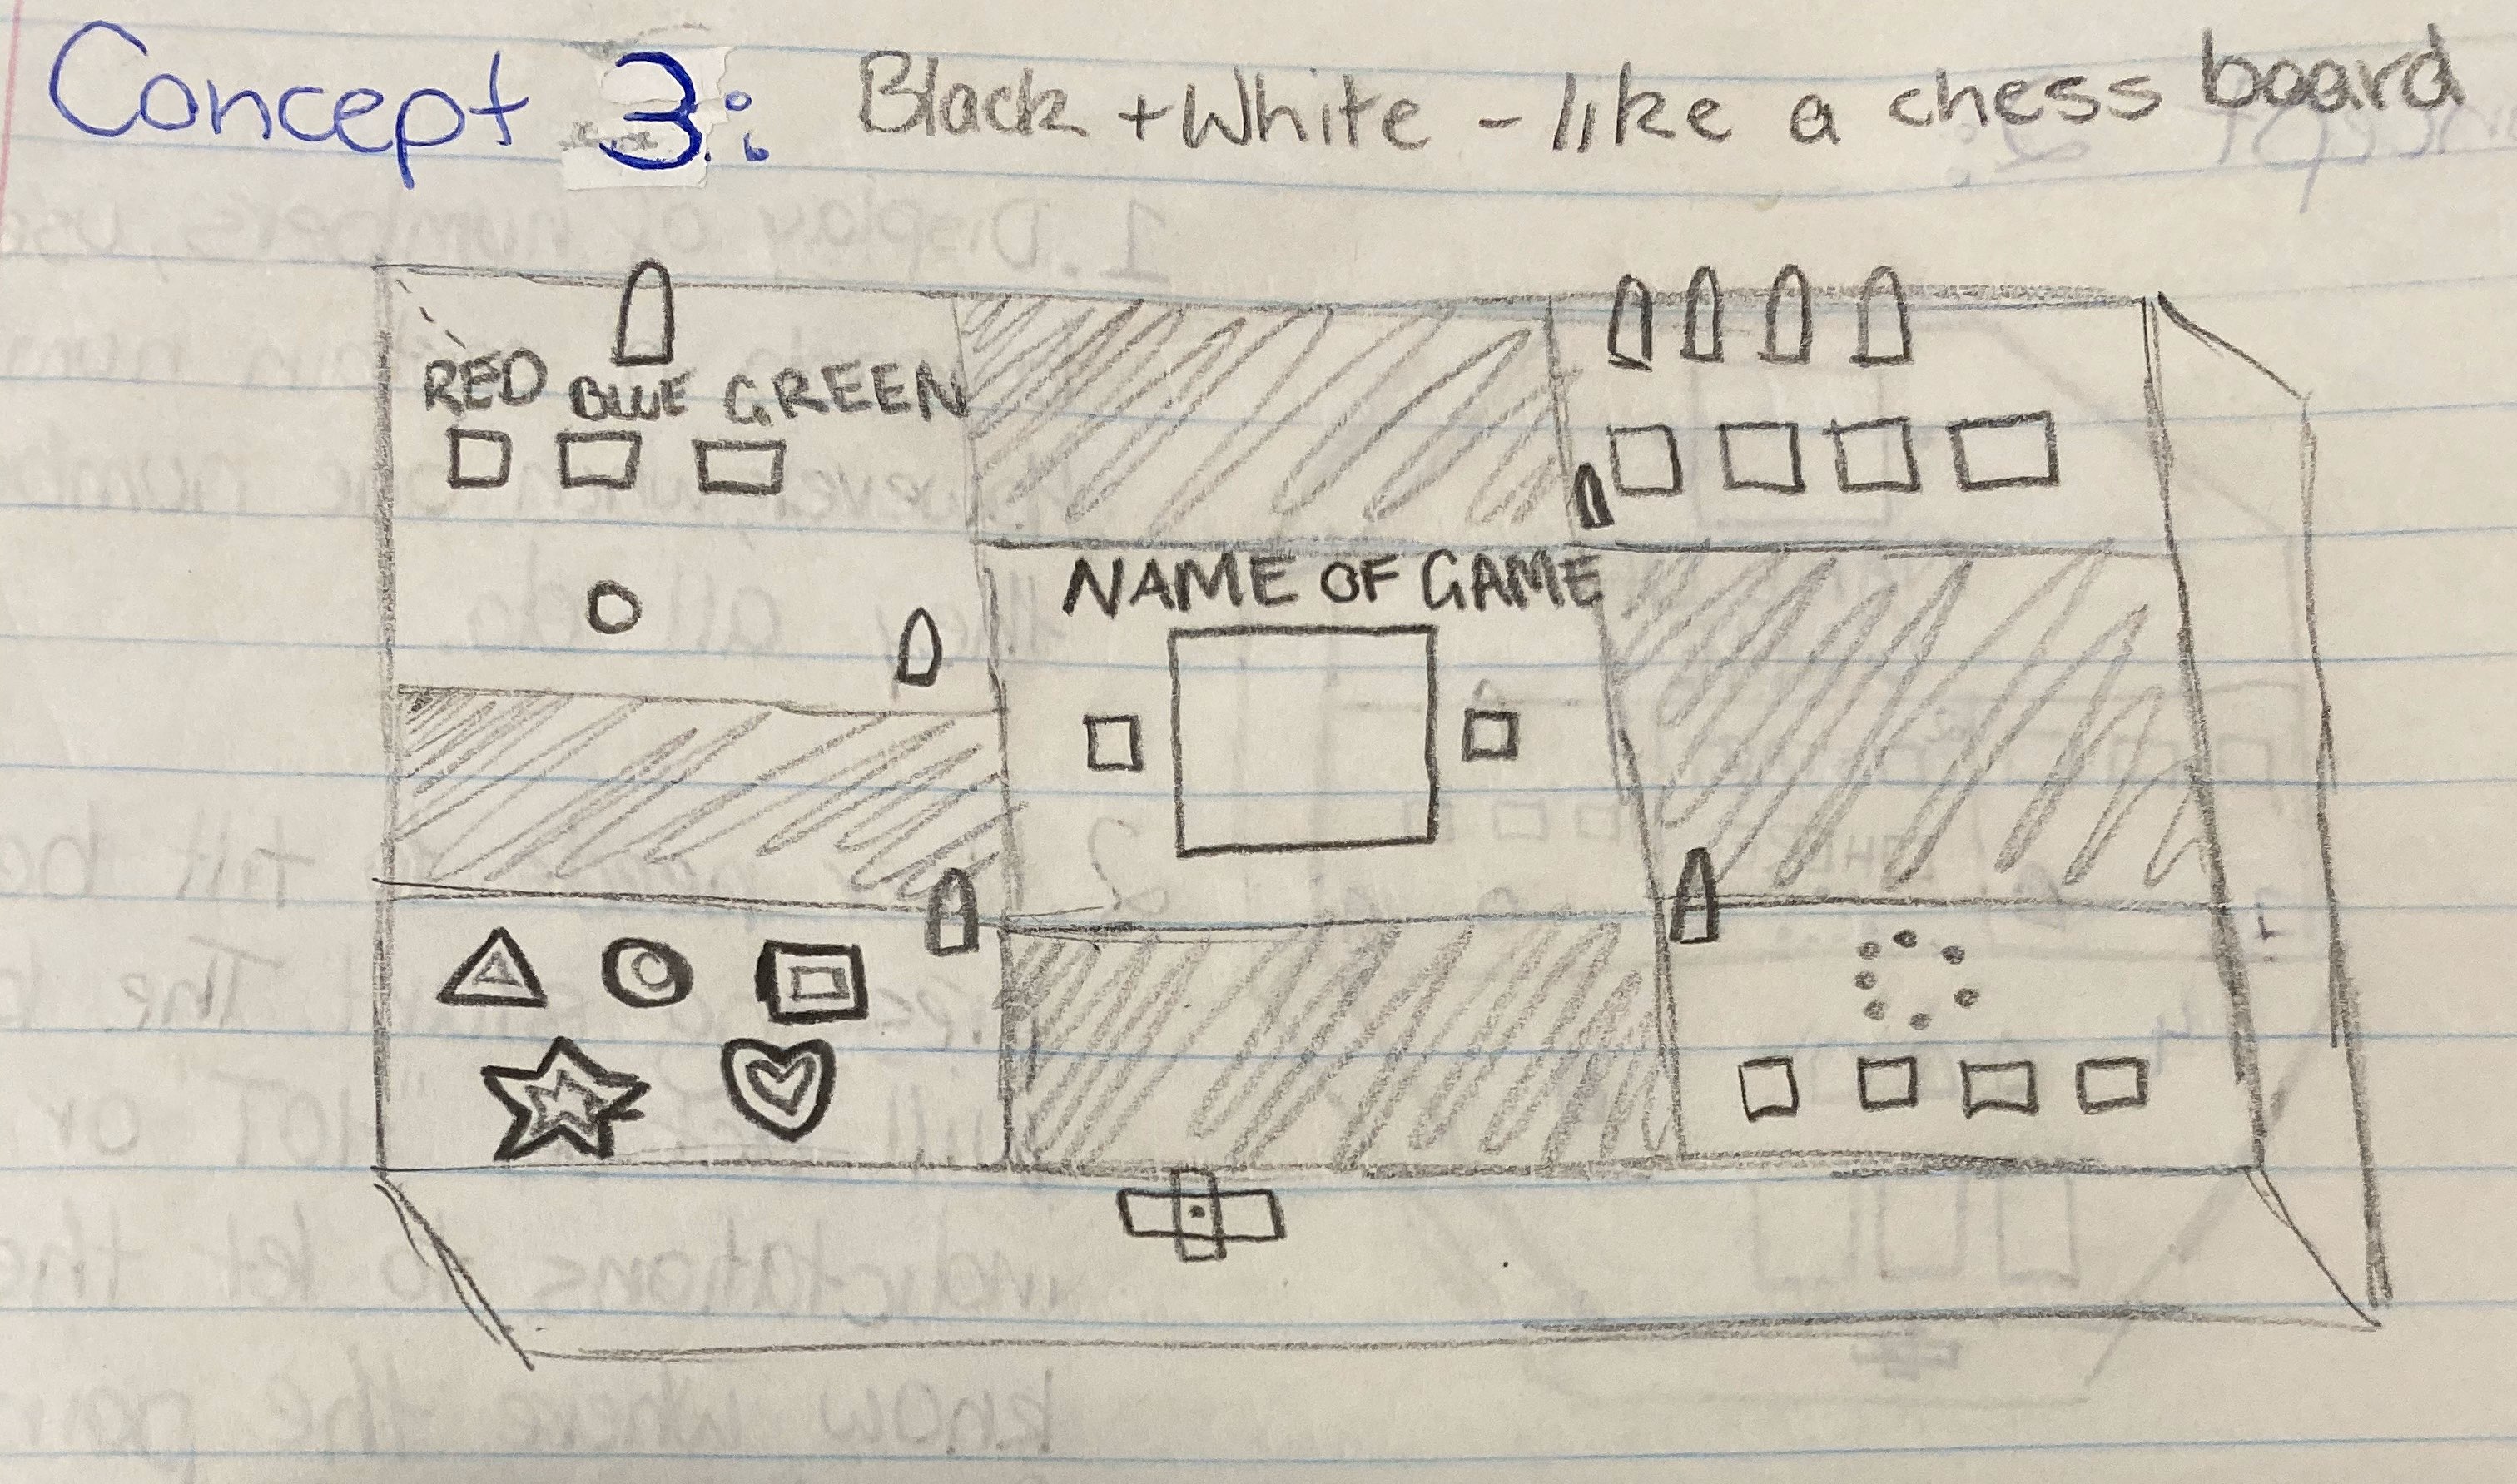 Concept 3: Black + White - like a chess board
RED BLUE GREEN
NAME OF GAME